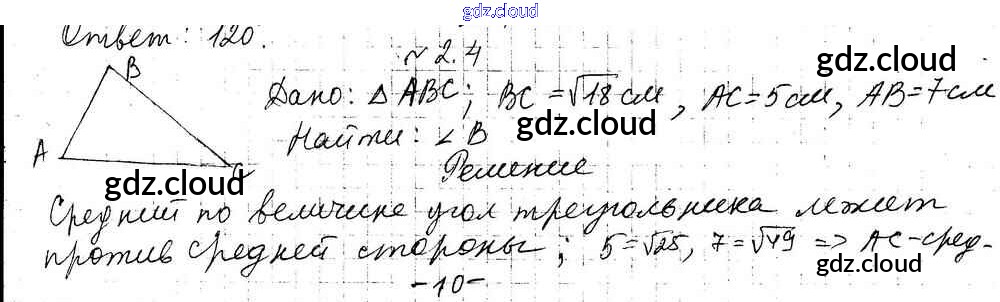 gdz.cloud
gdz.cloud
Ответ: 120.
№ 2.4
gdz.cloud
B
Дано: △ ABC; BC = √18 см, AC = 5 см, AB = 7 см
gdz.cloud
Найти: ∠B
A
C
Решение
gdz.cloud
gdz.cloud
Средний по величине угол треугольника лежит
против средней стороны; 5 = √25, 7 = √49 => AC - сред-
gdz.cloud
gdz.cloud
-10-